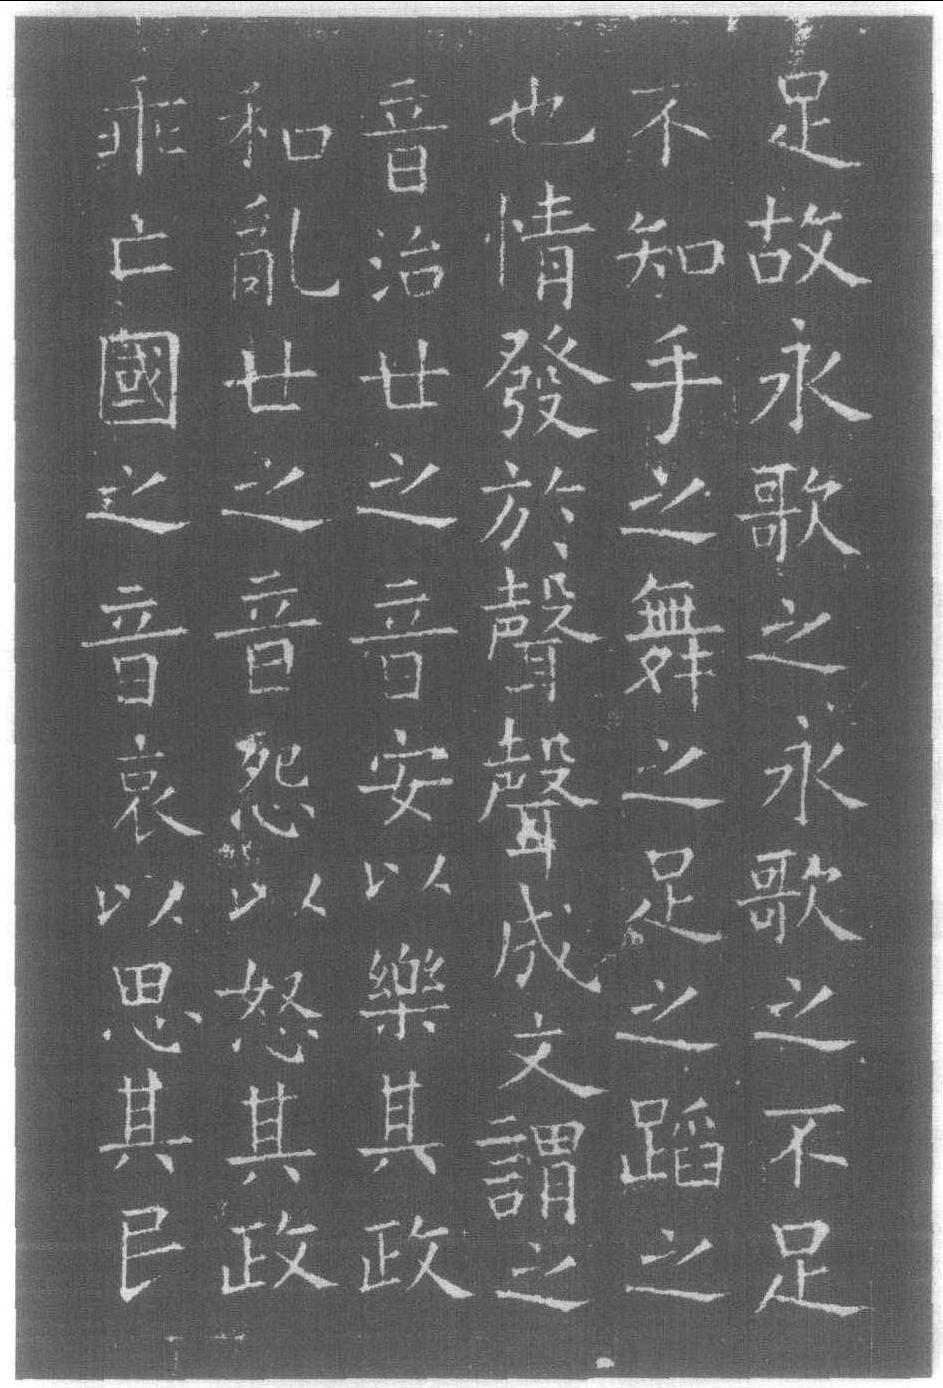 足故永歌之永歌之不足
不知手之舞之足之蹈之
也情發於聲聲成文謂之
音治廿之音安以樂其政
和亂廿之音怨以怒其政
乖亡國之音哀以思其民